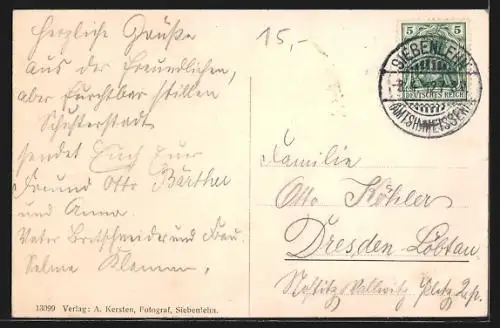 Herzliche Grüße
aus der freundlichen,
aber furchtbar stillen
Schusterstadt
sendet Euch Euer
Freund Otto Barthel
und Anna.
Vater Bretschneider und Frau.
Selma
13099 Verlag: A. Kersten, Fotograf, Siebenlehn.
15,-
5 5
DEUTSCHES REICH
SIEBENLEHN
(AMTSH. MEISSEN)
Familie
Otto Köhler
Dresden-Löbtau
Nostitz-Wallwitz Platz 2 p.